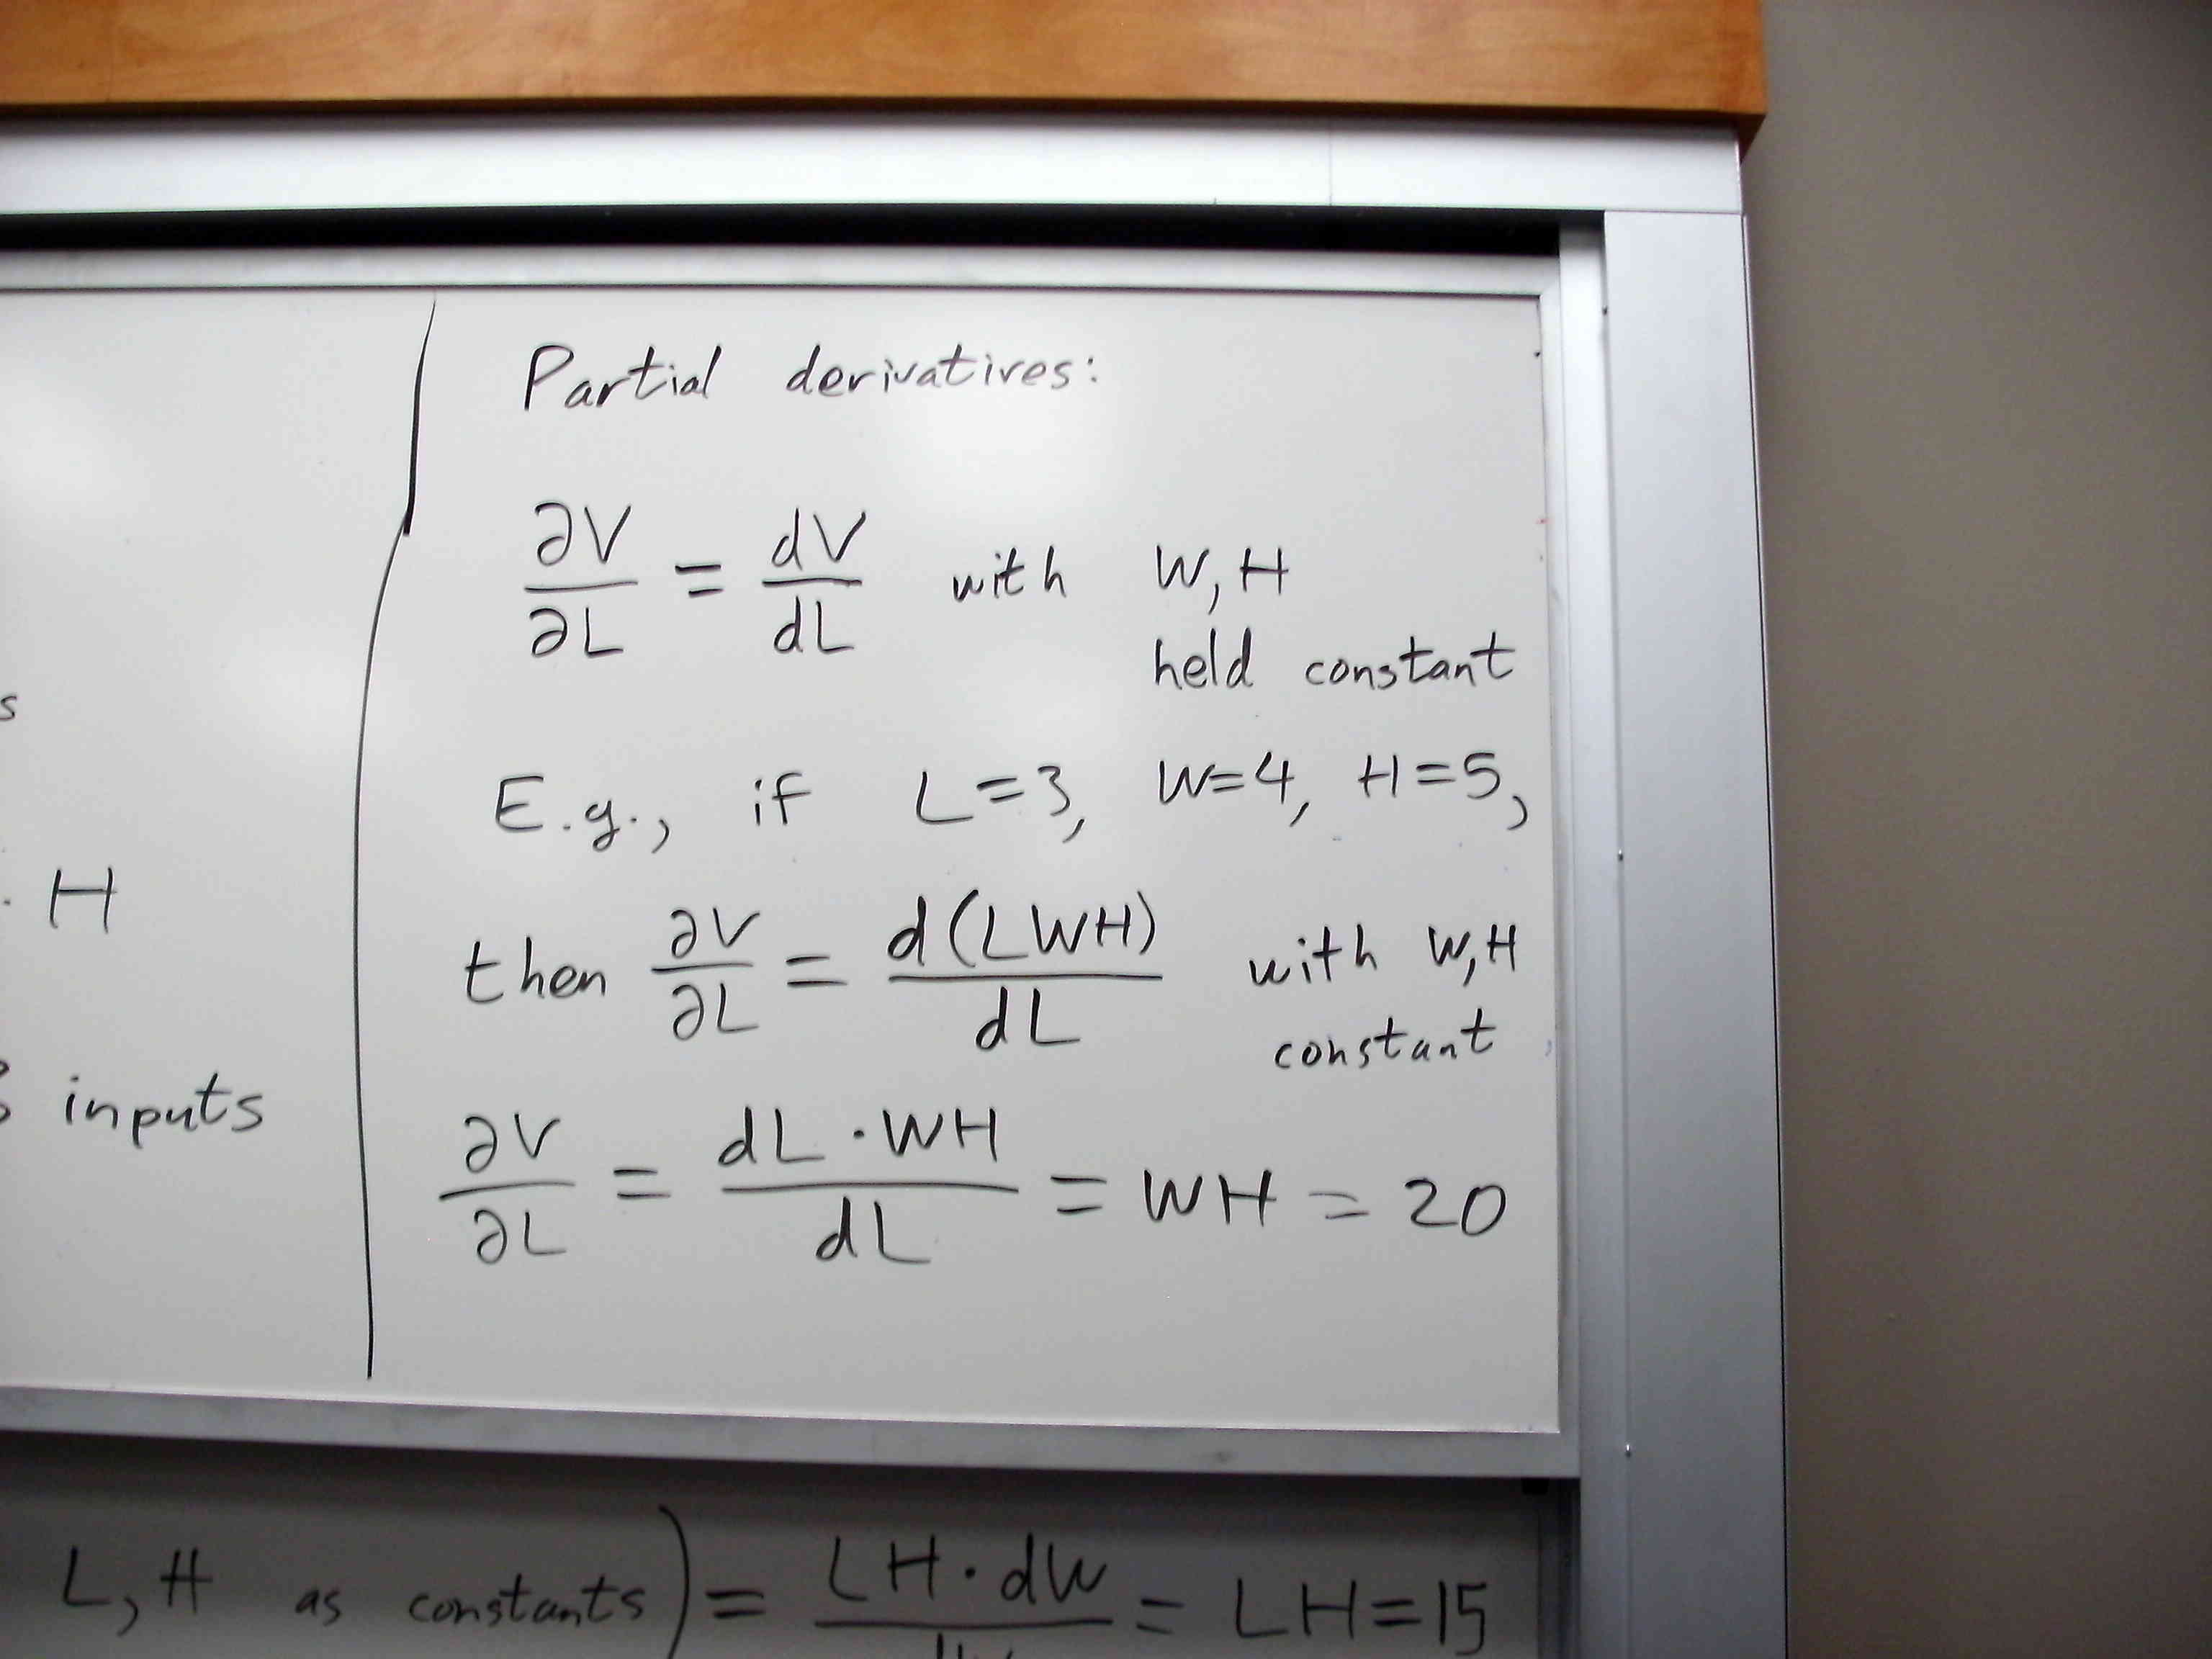 s
· H
inputs
Partial derivatives:
∂V/∂L = dV/dL with W, H
held constant
E.g., if L=3, W=4, H=5,
then ∂V/∂L = d(LWH)/dL with W,H
constant
∂V/∂L = dL·WH/dL = WH = 20
L, H as constants) = LH·dW/dW = LH=15